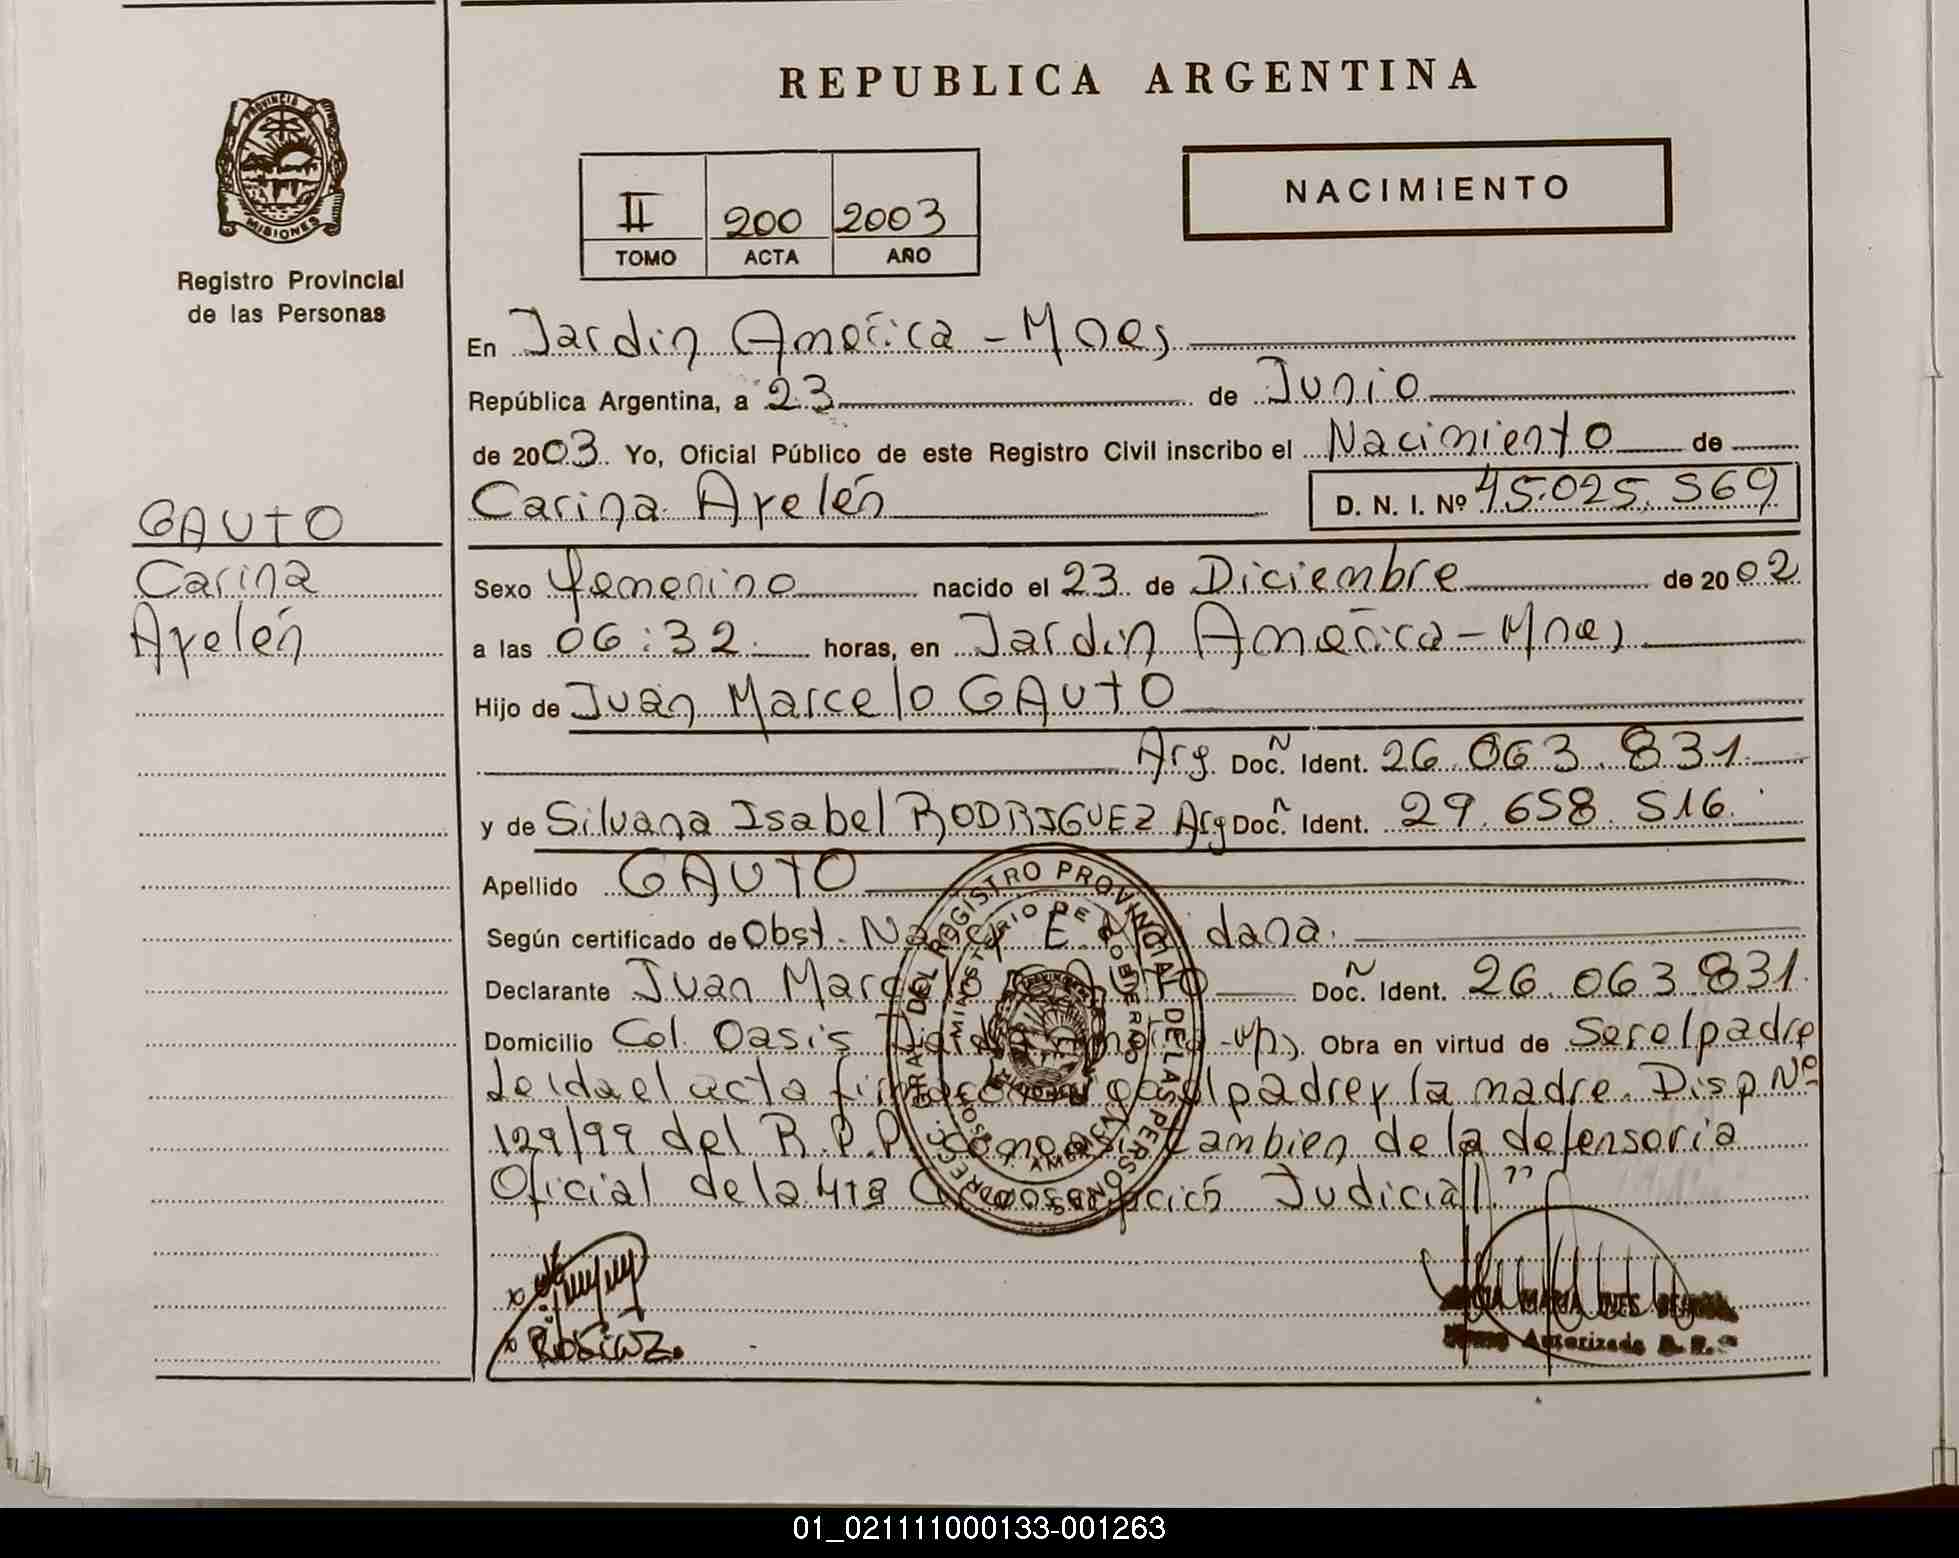 REPUBLICA ARGENTINA
PROVINCIA DE
MISIONES
Registro Provincial
de las Personas
NACIMIENTO
II 200 2003
TOMO ACTA AÑO
En Jardin America - Mnes
República Argentina, a 23 de Junio
de 2003. Yo, Oficial Público de este Registro Civil inscribo el Nacimiento de
Carina Ayelén D. N. I. Nº 45.025.569
GAUTO
Carina
Ayelén
Sexo femenino nacido el 23 de Diciembre de 2002
a las 06:32 horas, en Jardin America - Mnes
Hijo de Juan Marcelo GAUTO
Arg Doc. Ident. 26.063.831
y de Silvana Isabel RODRIGUEZ Arg Doc. Ident. 29.658.516
Apellido GAUTO
Según certificado de Obst. Nancy E. dana.
Declarante Juan Marcelo GAUTO Doc. Ident. 26.063.831
Domicilio Col. Oasis Jardin America - Mns Obra en virtud de Ser el padre
Leida el acta firman el padre y la madre. Disp Nº
129/99 del R.P.P. como asi tambien de la defensoria
Oficial de la 4ta Judicial"
MARIA INES
Autorizada
01_021111000133-001263